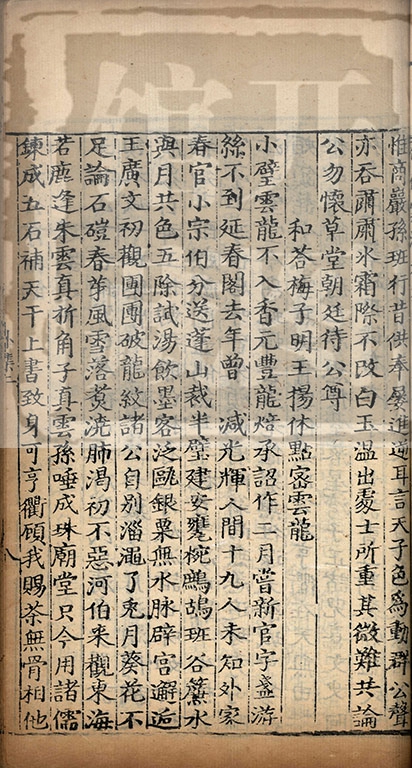 惟商巖孫班行昔供奉屢進逆耳言天子色爲動群公聲
亦吞爾爾氷霜際不改白玉溫出處士所重其微難共論
公勿懷草堂朝廷待公尊
和荅梅子明王揚休點密雲龍
小璧雲龍不入香元豐龍焙承詔作二月嘗新官字盞游
絲不到延春閣去年曾減光輝人間十九人未知外家
春官小宗伯分送蓬山裁半璧建安甕椀鷓鴣班谷簾水
與月共色五除試湯飲墨客泛甌銀粟無水脉辟宫邂逅
王廣文初觀團團破龍紋諸公自別淄澠了兎月葵花不
足論石磑春芽風雪落煑澆肺渴初不惡河伯来觀東海
若鹿逢朱雲真折角子真雲孫唾成珠廟堂只今用諸儒
鍊成五石補天干上書致身可亨衢顧我賜茶無骨相他
八